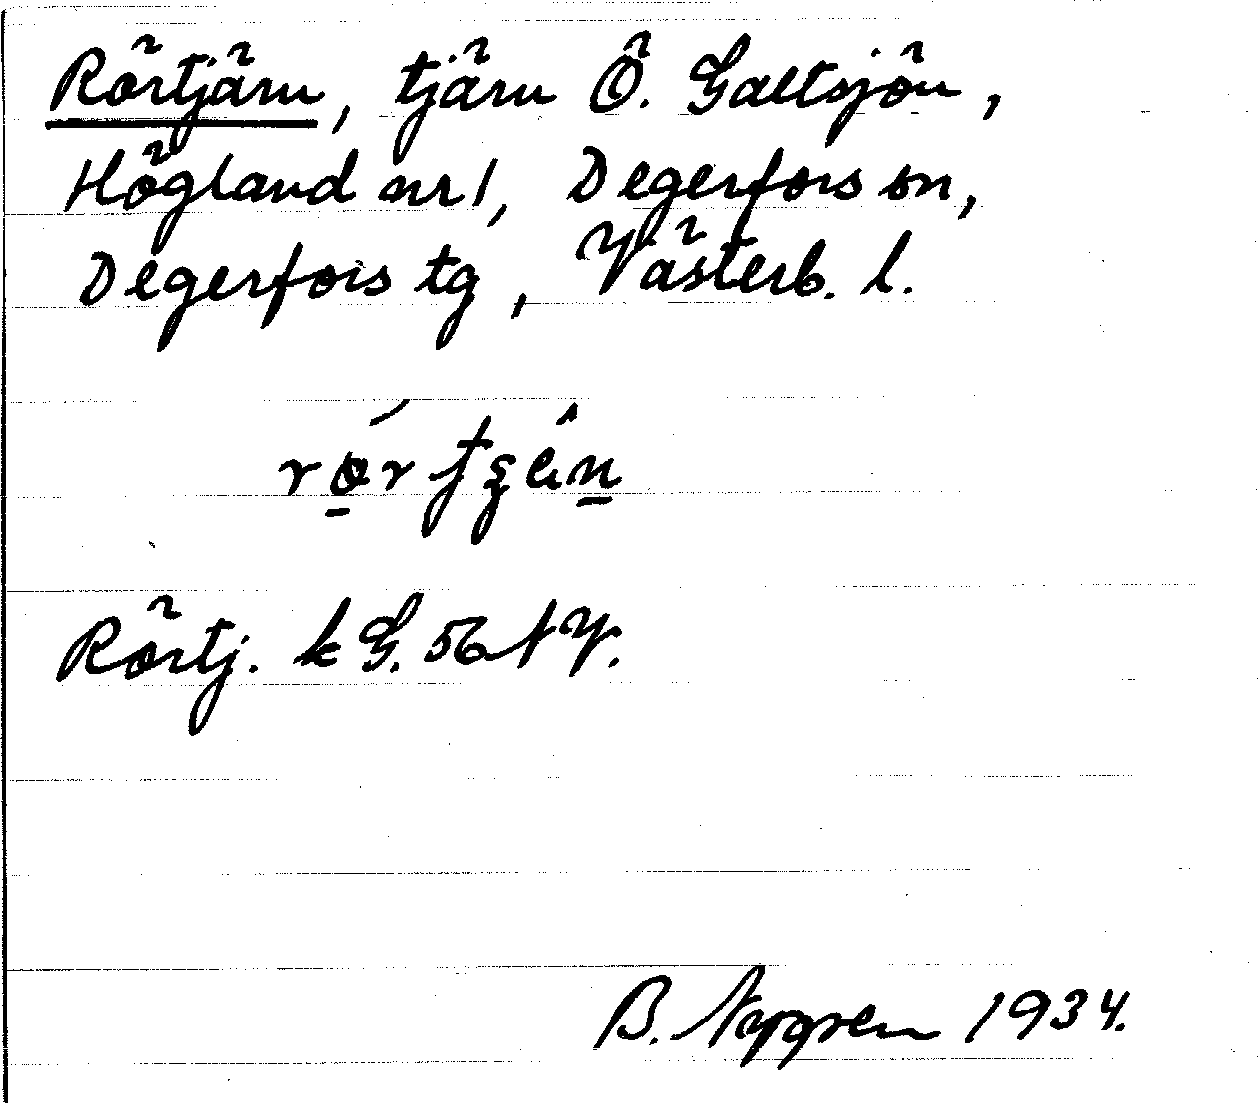 Rörtjärn, tjärn Ö. Galtsjön,
Högland nr 1, Degerfors sn,
Degerfors tg, Västerb. l.
Rörtj. k G. 56 NV.
B. Nygren 1934.